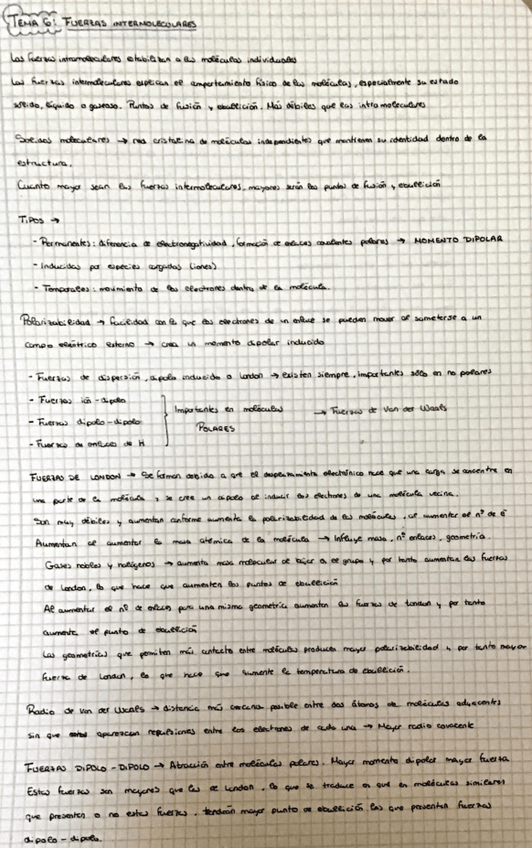 TEMA 6: FUERZAS INTERMOLECULARES
Las fuerzas intramoleculares estabilizan a las moléculas individuales
Las fuerzas intermoleculares explican el comportamiento físico de las moléculas, especialmente su estado
sólido, líquido o gaseoso. Puntos de fusión y ebullición. Más débiles que las intramoleculares
Sólidos moleculares → red cristalina de moléculas independientes que mantienen su identidad dentro de la
estructura.
Cuanto mayor sean las fuerzas intermoleculares, mayores serán los puntos de fusión y ebullición
TIPOS →
- Permanentes: diferencia de electronegatividad, formación de enlaces covalentes polares → MOMENTO DIPOLAR
- Inducidas por especies cargadas (iones)
- Temporales: movimiento de los electrones dentro de la molécula.
Polarizabilidad → facilidad con la que los electrones de un enlace se pueden mover al someterse a un
campo eléctrico externo → crea un momento dipolar inducido
- Fuerzas de dispersión, dipolo inducido o London → existen siempre, importantes sólo en no polares
- Fuerzas ión-dipolo
- Fuerzas dipolo-dipolo
- Fuerzas de enlaces de H
Importantes en moléculas
POLARES
→ Fuerzas de Van der Waals
FUERZAS DE LONDON → Se forman debido a que el desplazamiento electrónico hace que una carga se concentre en
una parte de la molécula y se cree un dipolo al inducir los electrones de una molécula vecina.
Son muy débiles y aumentan conforme aumenta la polarizabilidad de las moléculas, al aumentar el nº de é
Aumentan al aumentar la masa atómica de la molécula → Influye masa, nº enlaces, geometría
Gases nobles y halógenos → aumenta masa molecular al bajar en el grupo y por tanto aumentan las fuerzas
de London, lo que hace que aumenten los puntos de ebullición
Al aumentar el nº de enlaces para una misma geometría aumentan las fuerzas de London y por tanto
aumenta el punto de ebullición
Las geometrías que permiten más contacto entre moléculas producen mayor polarizabilidad y por tanto mayor
fuerza de London, lo que hace que aumente la temperatura de ebullición.
Radio de Van der Waals → distancia más cercana posible entre dos átomos de moléculas adyacentes
sin que aparezcan repulsiones entre los electrones de cada una → Mayor radio covalente
FUERZAS DIPOLO-DIPOLO → Atracción entre moléculas polares. Mayor momento dipolar mayor fuerza
Estas fuerzas son mayores que las de London, lo que se traduce en que en moléculas similares
que presentan o no estas fuerzas, tendrán mayor punto de ebullición las que presentan fuerzas
dipolo-dipolo.